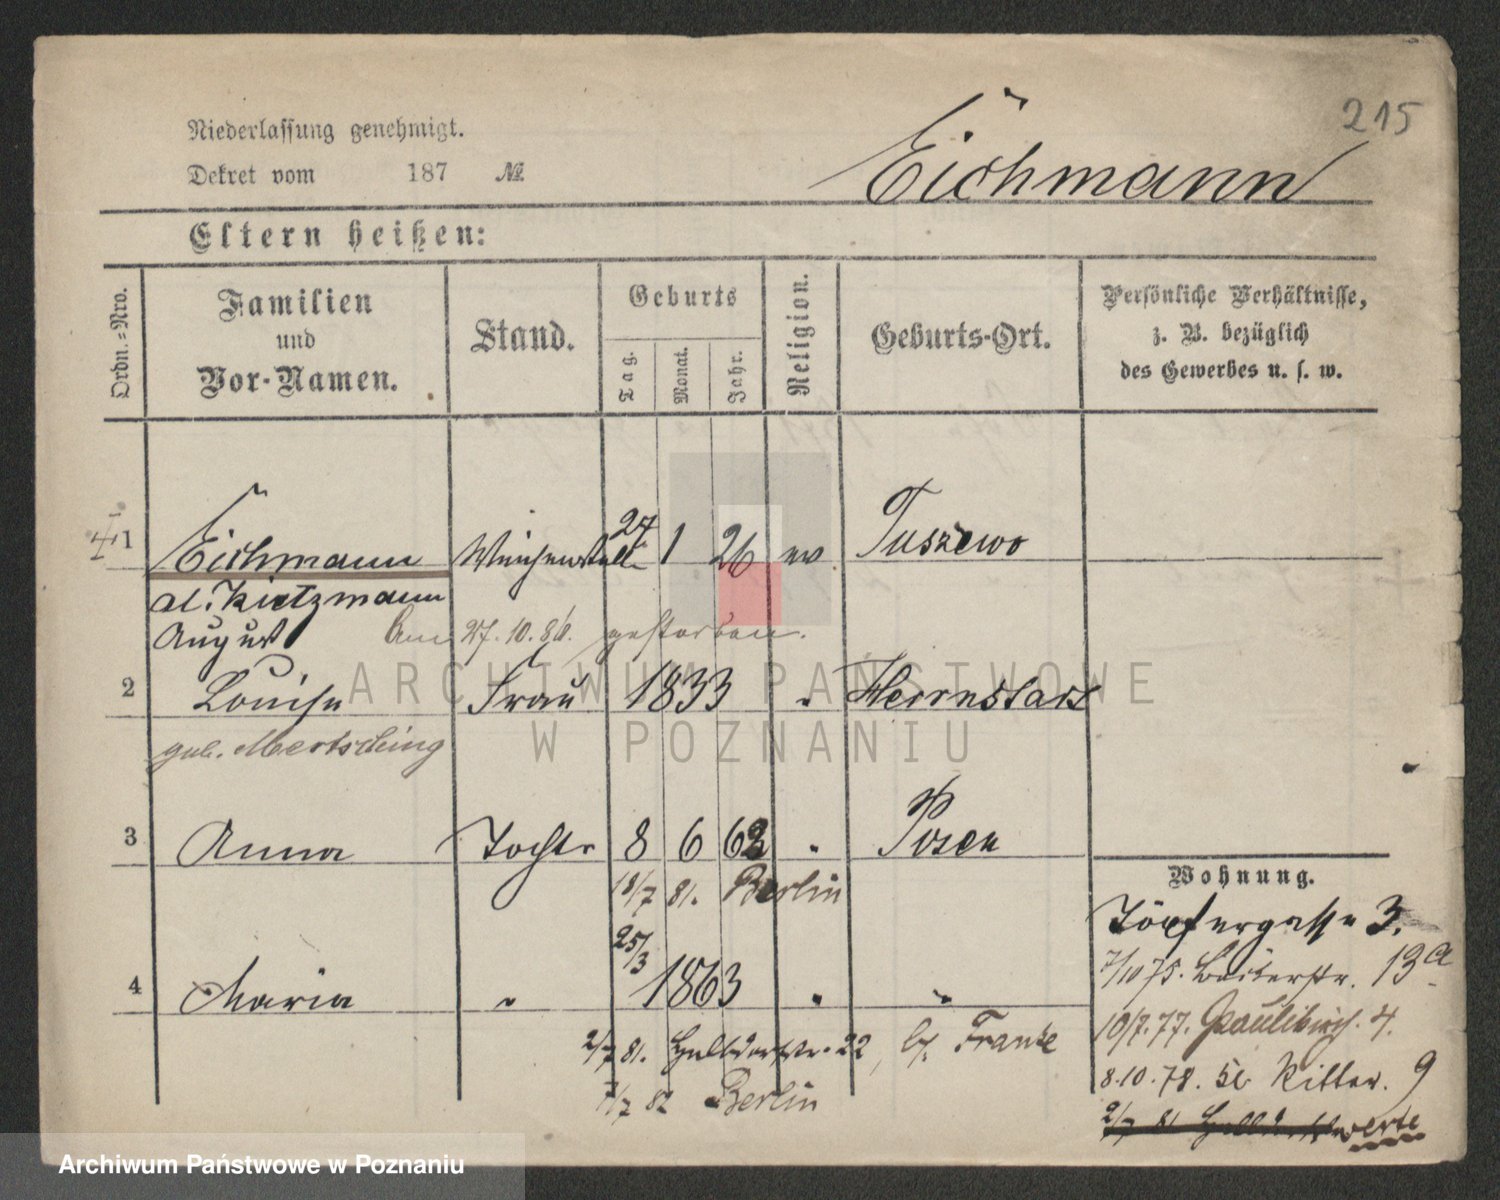 215
Niederlassung genehmigt.
Dekret vom 187 №
Eichmann
Eltern heißen:
Ordn.-Nro.
Familien und Vor-Namen.
Stand.
Geburts
Tag. Monat. Jahr.
Religion.
Geburts-Ort.
Persönliche Verhältnisse,
z. B. bezüglich
des Gewerbes u. s. w.
1 Eichmann Weichenstell 27 1 26 ev Tuszewo
al. Kietzmann
August Am 27.10.80. gestorben.
2 Louise Frau 1833 " Herrnstadt
geb. Mertsching
3 Anna Tochter 8 6 62 " Posen
18/7 81. Berlin
25/3
4 Maria " 1863 " "
2/7 81. Halbdorfstr. 22, b/. Franke
7/7 82 Berlin
Wohnung.
Töpfergasse 3.
7/10 75. Bäckerstr. 13a
10/7. 77. Paulikirch. 4.
8.10.78. Kl Ritter. 9
2/7 81
ARCHIWUM PAŃSTWOWE
W POZNANIU
Archiwum Państwowe w Poznaniu